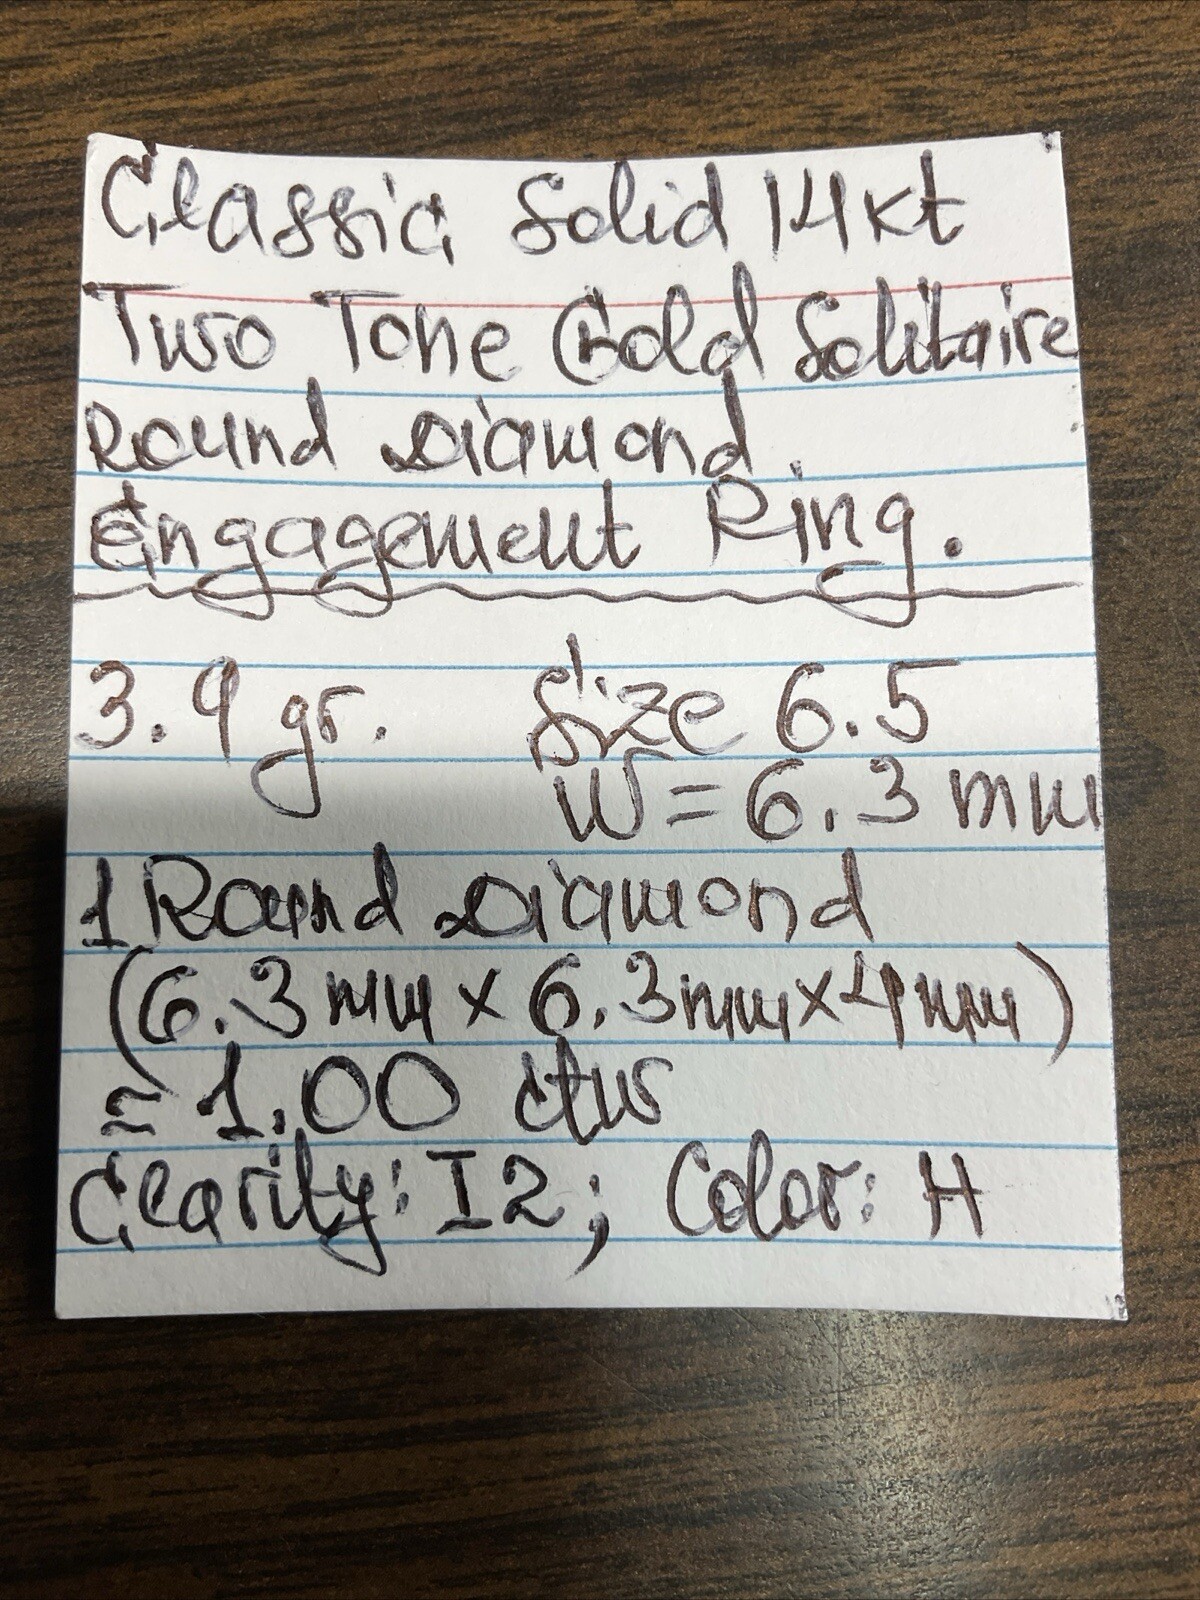 Classic Solid 14kt
Two Tone Gold Solitaire
Round Diamond
Engagement Ring.
3.9 gr. Size 6.5
W = 6.3 mm
1 Round Diamond
(6.3 mm x 6.3mm x 4mm)
≃ 1.00 ctw
Clarity: I2; Color: H